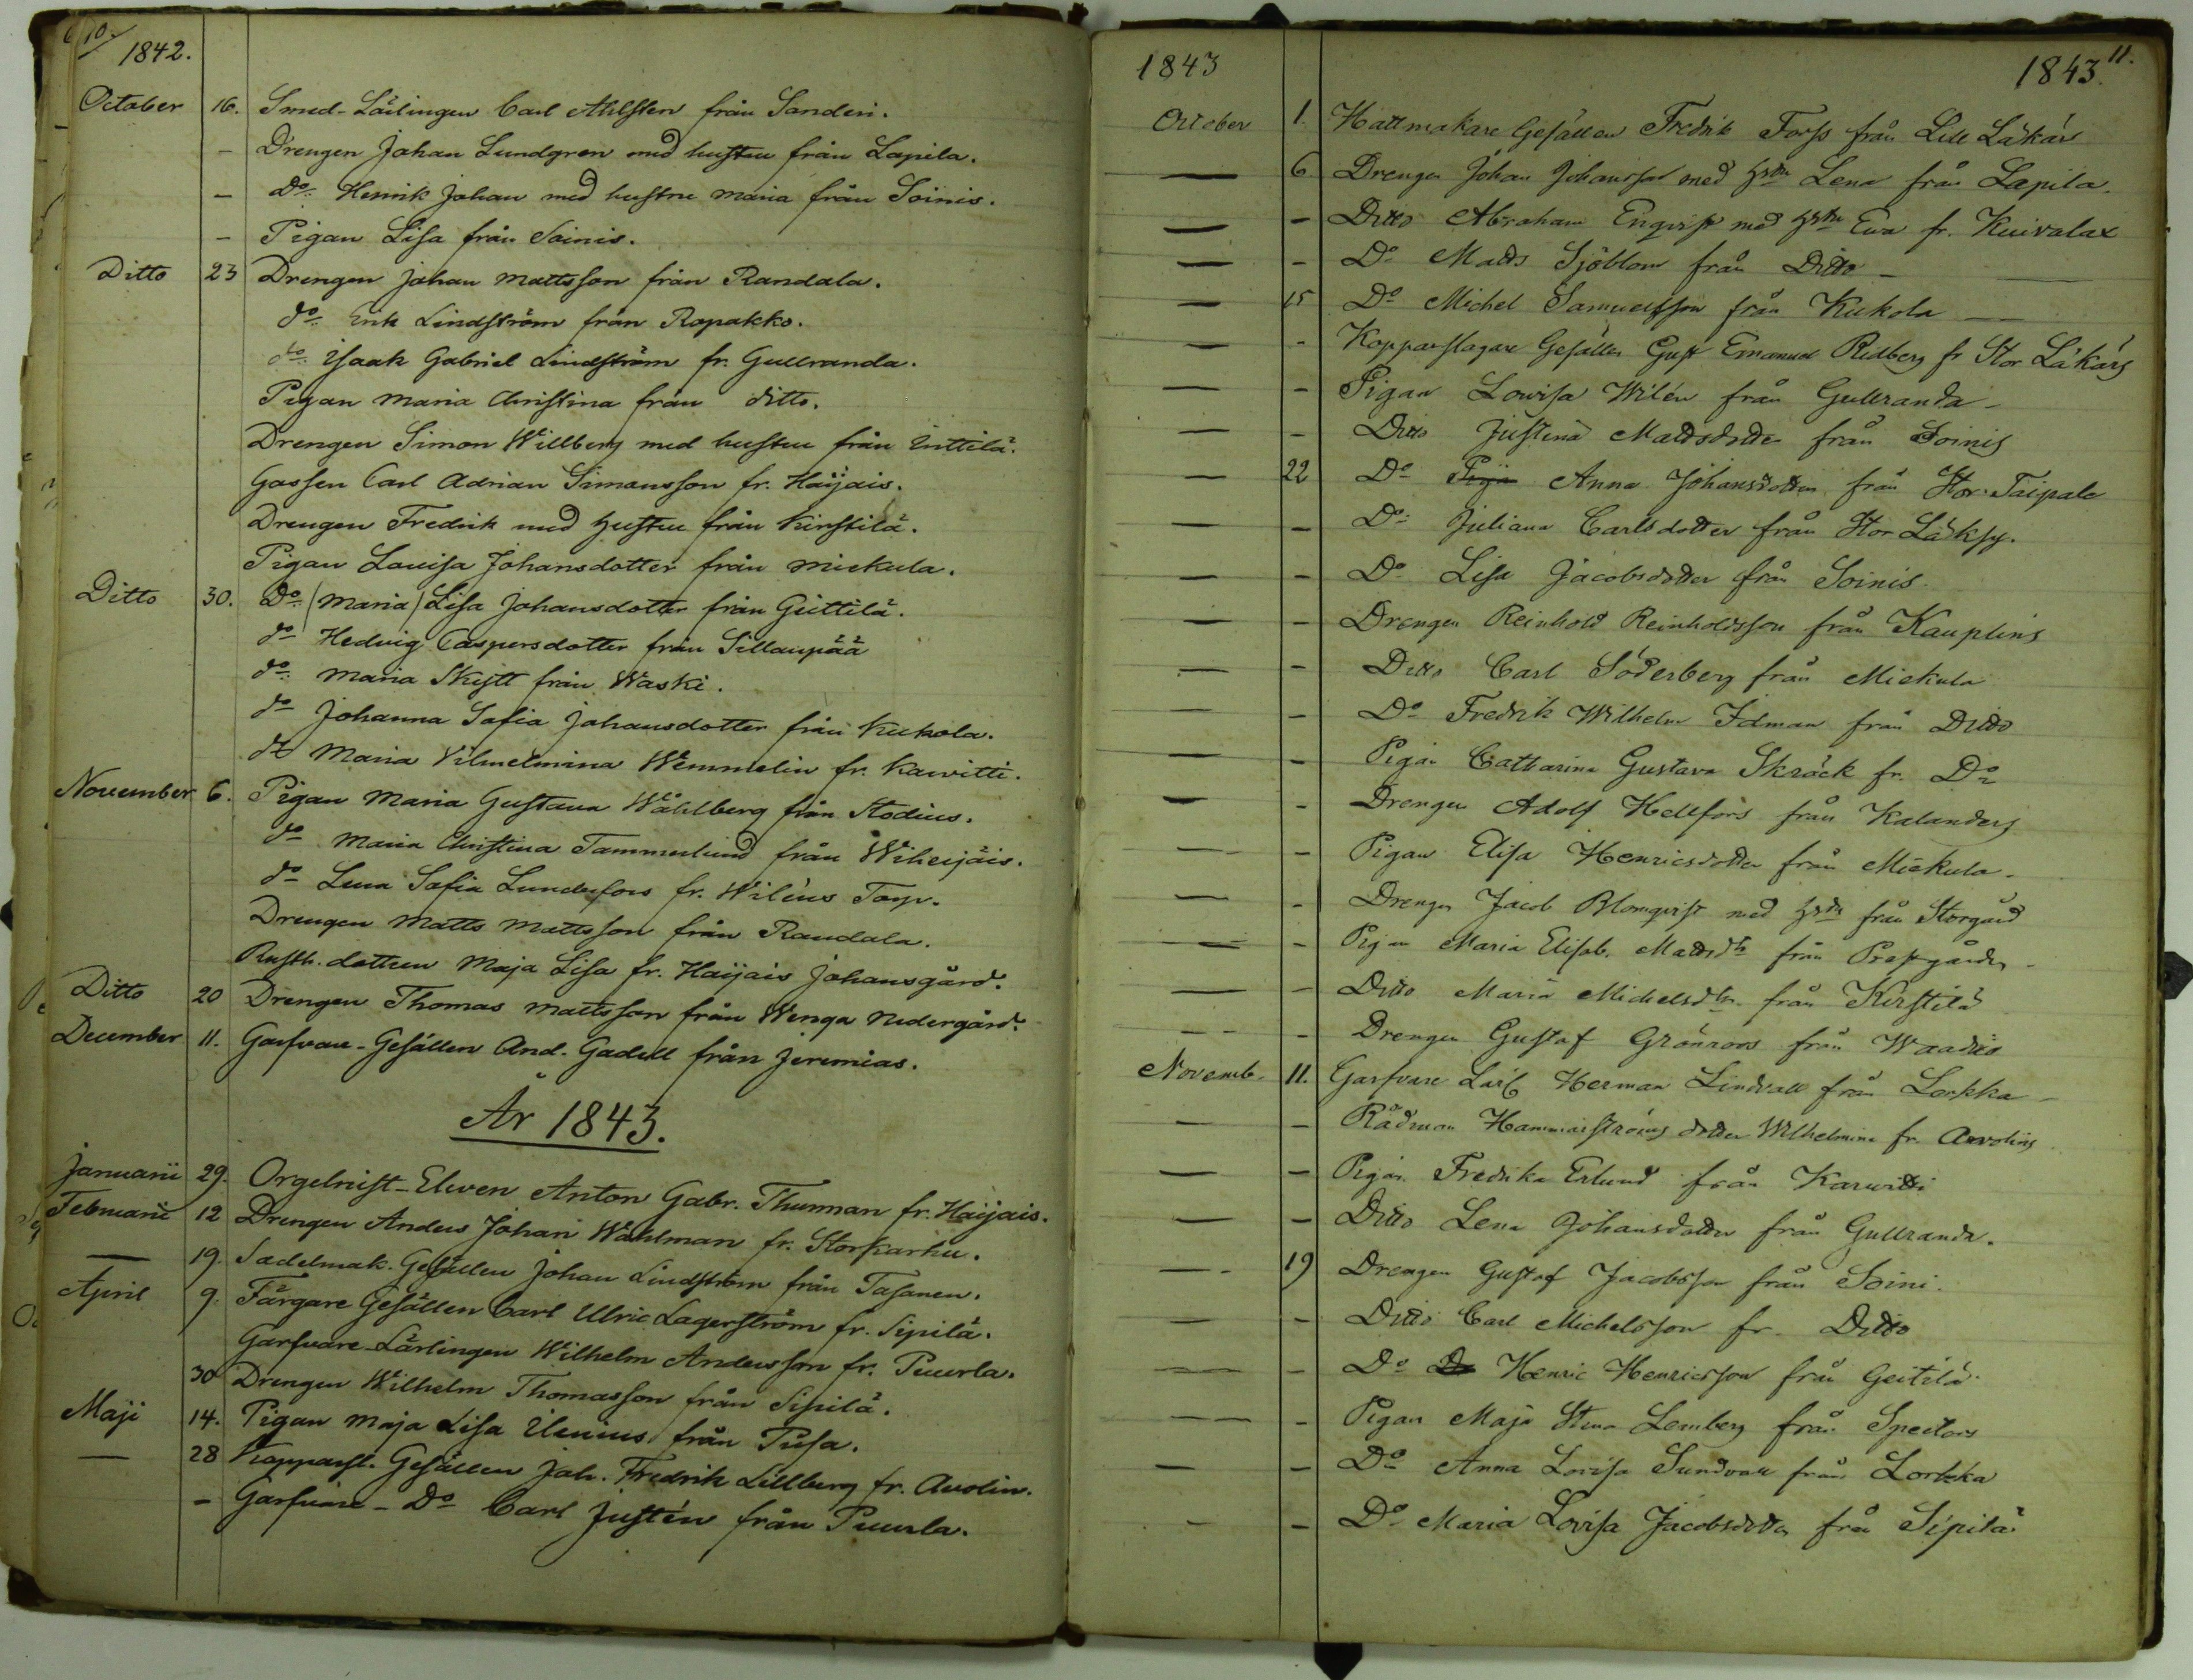 10.
1842.
October 16. Smed-Lärlingen Carl Ahlsten från Sanderi.
– Drengen Johan Lundgren med hustru från Lapila.
– Do: Henrik Johan med hustru Maria från Soinis.
– Pigan Lisa från Soinis.
Ditto 23 Drengen Johan Mattsson från Randala.
do: Erik Lindström från Ropakko.
do: Isaak Gabriel Lindström fr. Gullranda.
Pigan Maria Christina från ditto.
Drengen Simon Willberg med hustru från Inttilä.
Gossen Carl Adrian Simonsson fr. Haijais.
Drengen Fredrik med Hustru från Kirstilä.
Pigan Lovisa Johansdotter från Miekula.
Ditto 30. Do: /Maria/ Lisa Johansdotter från Geittilä.
do Hedvig Caspersdotter från Sillanpää
do: Maria Skytt från Waski.
do Johanna Sofia Johansdotter från Kukola.
do Maria Vilhelmina Wemmelin fr. Karvitti.
November 6. Pigan Maria Gustava Wåhlberg från Stodius.
do Maria Christina Tammerlund från Wiheijäis.
do Lena Sofia Lunderfors fr. Wiléns Torp.
Drengen Matts Mattsson från Randala.
Rusth. dottren Maja Lisa fr. Haijais Johansgård.
Ditto 20 Drengen Thomas Mattsson från Wenga Nedergård.
December 11. Garfvare-Gesällen And. Gadell från Jeremias.
År 1843.
Januarii 29. Orgelnist-Eleven Anton Gabr. Thurman fr. Haijais.
Februarii 12 Drengen Anders Johan Wahlman fr. Storkarhu.
— 19. Sadelmak. Gesällen Johan Lindström från Tasanen.
April 9. Färgare Gesällen Carl Ulric Lagerström fr. Sipilä.
Garfvare-Lärlingen Wilhelm Andersson fr. Puurla.
30 Drengen Wilhelm Thomasson från Sipilä.
Maji 14. Pigan Maja Lisa Ilenius från Pusa.
— 28 Kopparsl. Gesällen Joh. Fredrik Lillberg fr. Avolin.
– Garfvare – Do Carl Justén från Puurla.
1843
1843. 11.
October 1. Hattmakare Gesällen Fredrik Forss från Lill Läkärs
— 6 Drengen Johan Johansson med hstru Lena från Lapila.
— – Ditto Abraham Enqvist med hstru Eva fr. Kuivalax
— – Do Matts Sjöblom från Ditto –
— 15 Do Michel Samuelsson från Kukola —
— – Kopparslagare Gesällen Gust Emanuel Ridberg fr Stor Läkärs
— – Pigan Lovisa Wilén från Gullranda –
— – Ditto Justina Mattsdotter från Soinis
— 22 Do Anna Johansdotter från Stor-Taipale
— – Do Juliana Carlsdotter från Stor Läksy.
— – Do Lisa Jacobsdotter från Soinis.
— – Drengen Reinhold Reinholdsson från Kauplins
— – Ditto Carl Söderberg från Miekula
— – Do Fredrik Wilhelm Idman från Ditto
— – Pigan Catharina Gustava Skräck fr. Do
— – Drengen Adolf Hellfors från Kalanders
— – Pigan Elisa Henricsdotter från Miekula –
— – Drengen Jacob Blomqvist med hstru från Storgård
— – Pigan Maria Elisab. Mattsdtr från Prestgården –
— – Ditto Maria Michelsdtr från Kirstilä
— – Drengen Gustaf Grönroos från Waadio
Novemb. 11. Garfvare Lärl. Herman Lindvall från Lorkka –
— – Rådman Hammarströms dotter Wilhelmina fr. Avolins
— – Pigan Fredrika Erlund från Karvitti
— – Ditto Lena Johansdotter från Gullranda.
— 19 Drengen Gustaf Jacobsson från Soini.
— – Ditto Carl Michelsson fr. Ditto
— – Do Henric Henricsson från Geitilä.
— – Pigan Maja Stina Lemberg från Spectars
— – Do Anna Lovisa Sundvall från Lorkka
— – Do Maria Lovisa Jacobsdotter från Sipilä